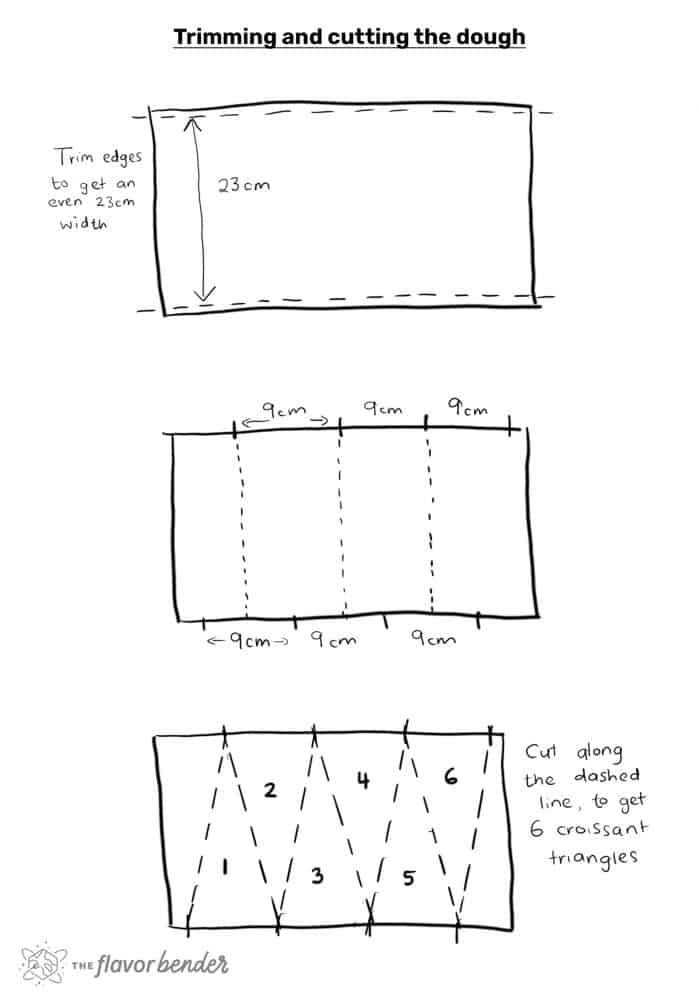 Trimming and cutting the dough
Trim edges
to get an
even 23cm
width
23cm
9cm
9cm
9cm
9cm
9cm
9cm
1
2
3
4
5
6
Cut along
the dashed
line, to get
6 croissant
triangles
THE flavor bender